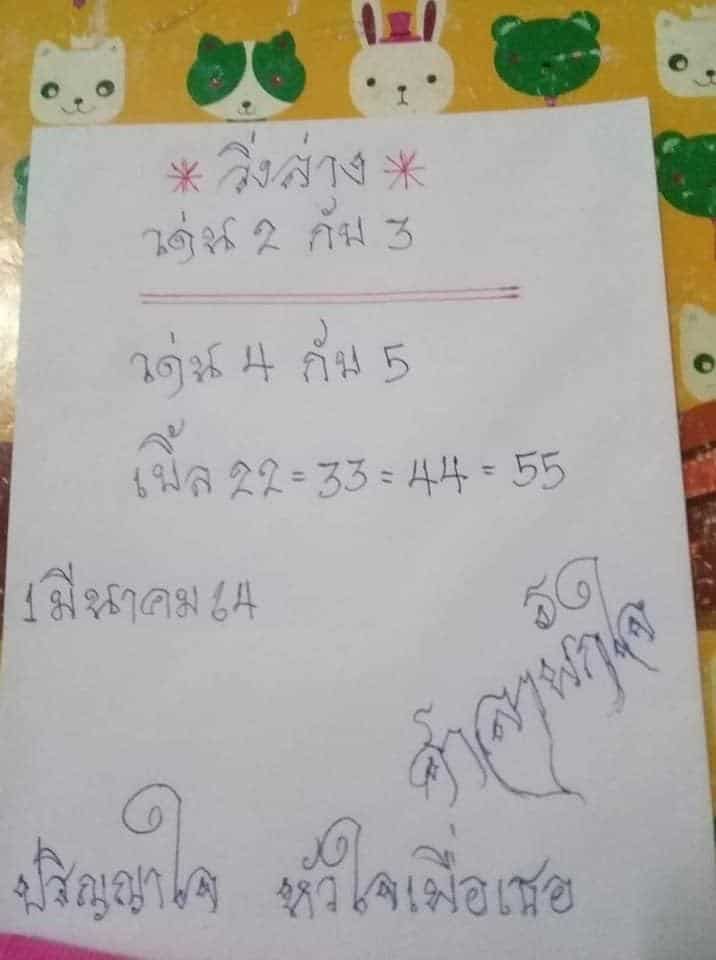 * วิ่งล่าง *
เด่น 2 กับ 3
เด่น 4 กับ 5
เบิ้ล 22 = 33 = 44 = 55
1 มีนาคม 64
ปริญญาใจ หัวใจเพื่อเธอ